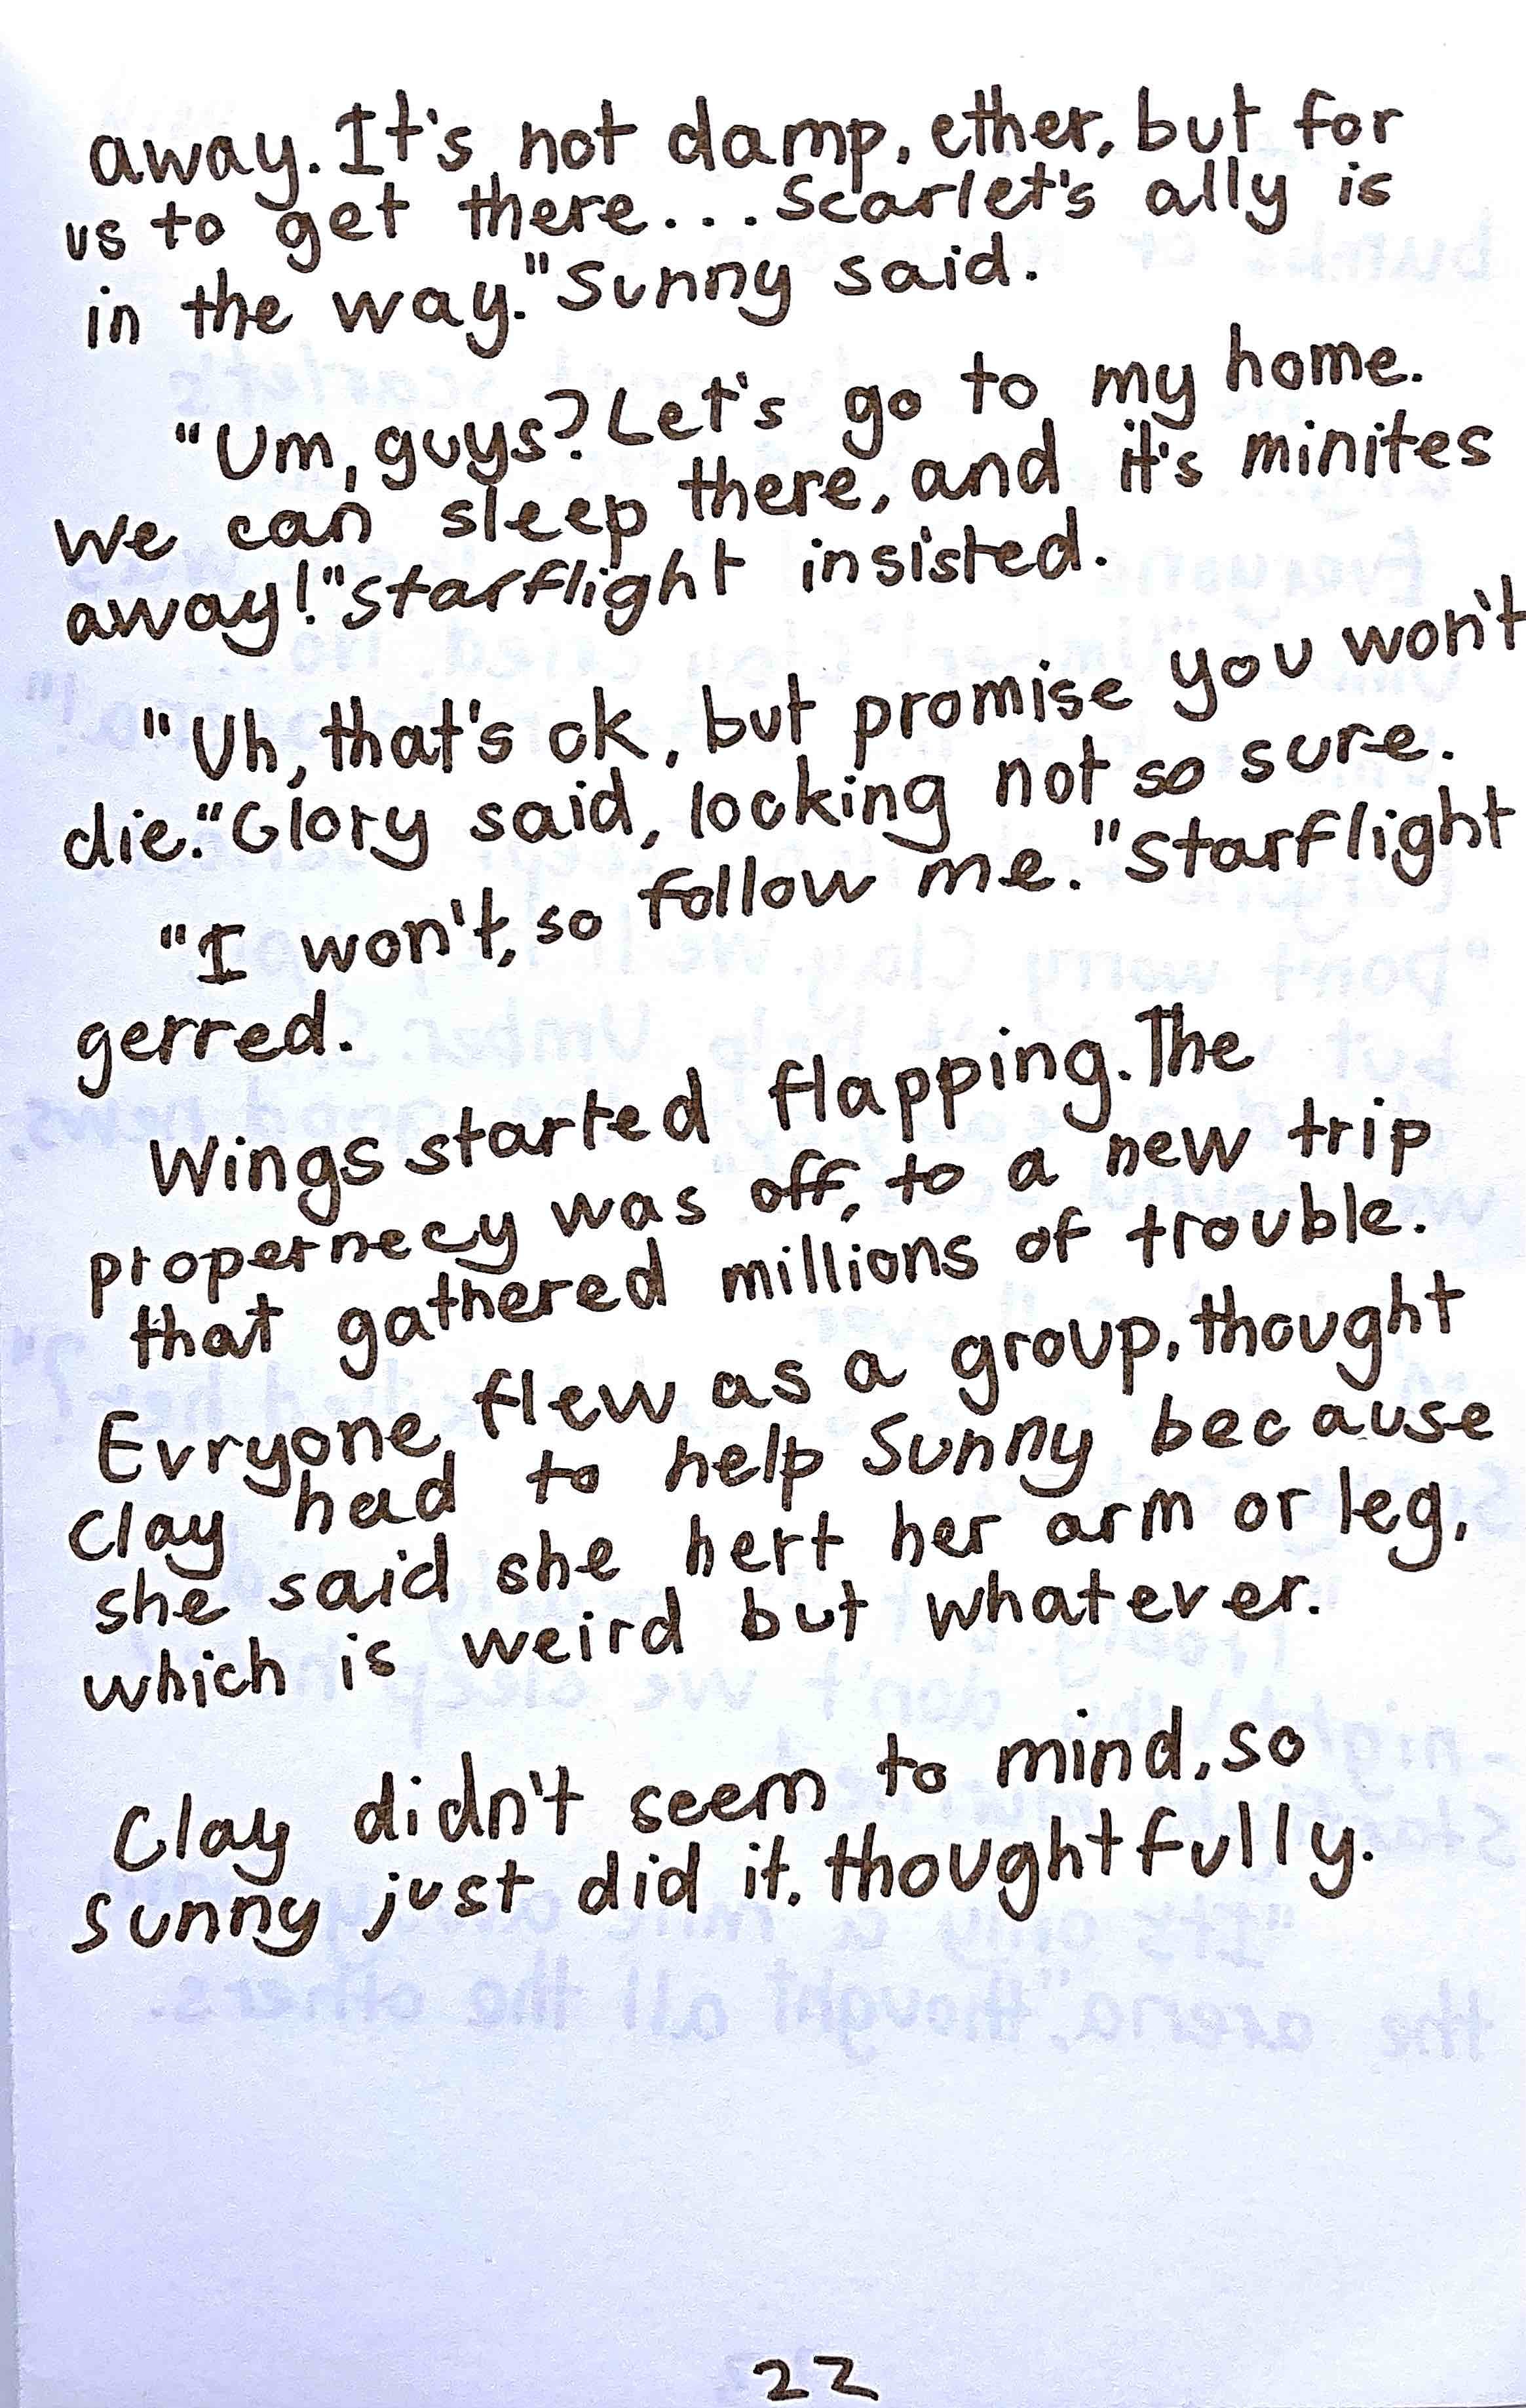 away. It's not damp, ether, but for
us to get there... Scarlet's ally is
in the way." Sunny said.
"Um, guys? Let's go to my home.
We can sleep there, and it's minites
away!" Starflight insisted.
"Uh, that's ok, but promise you won't
die." Glory said, looking not so sure.
"I won't, so follow me." Starflight
gerred.
Wings started flapping. The
propernecy was off, to a new trip
that gathered millions of trouble.
Evryone flew as a group, thought
Clay had to help Sunny because
she said she hert her arm or leg,
which is weird but whatever.
Clay didn't seem to mind, so
Sunny just did it, thoughtfully.
22